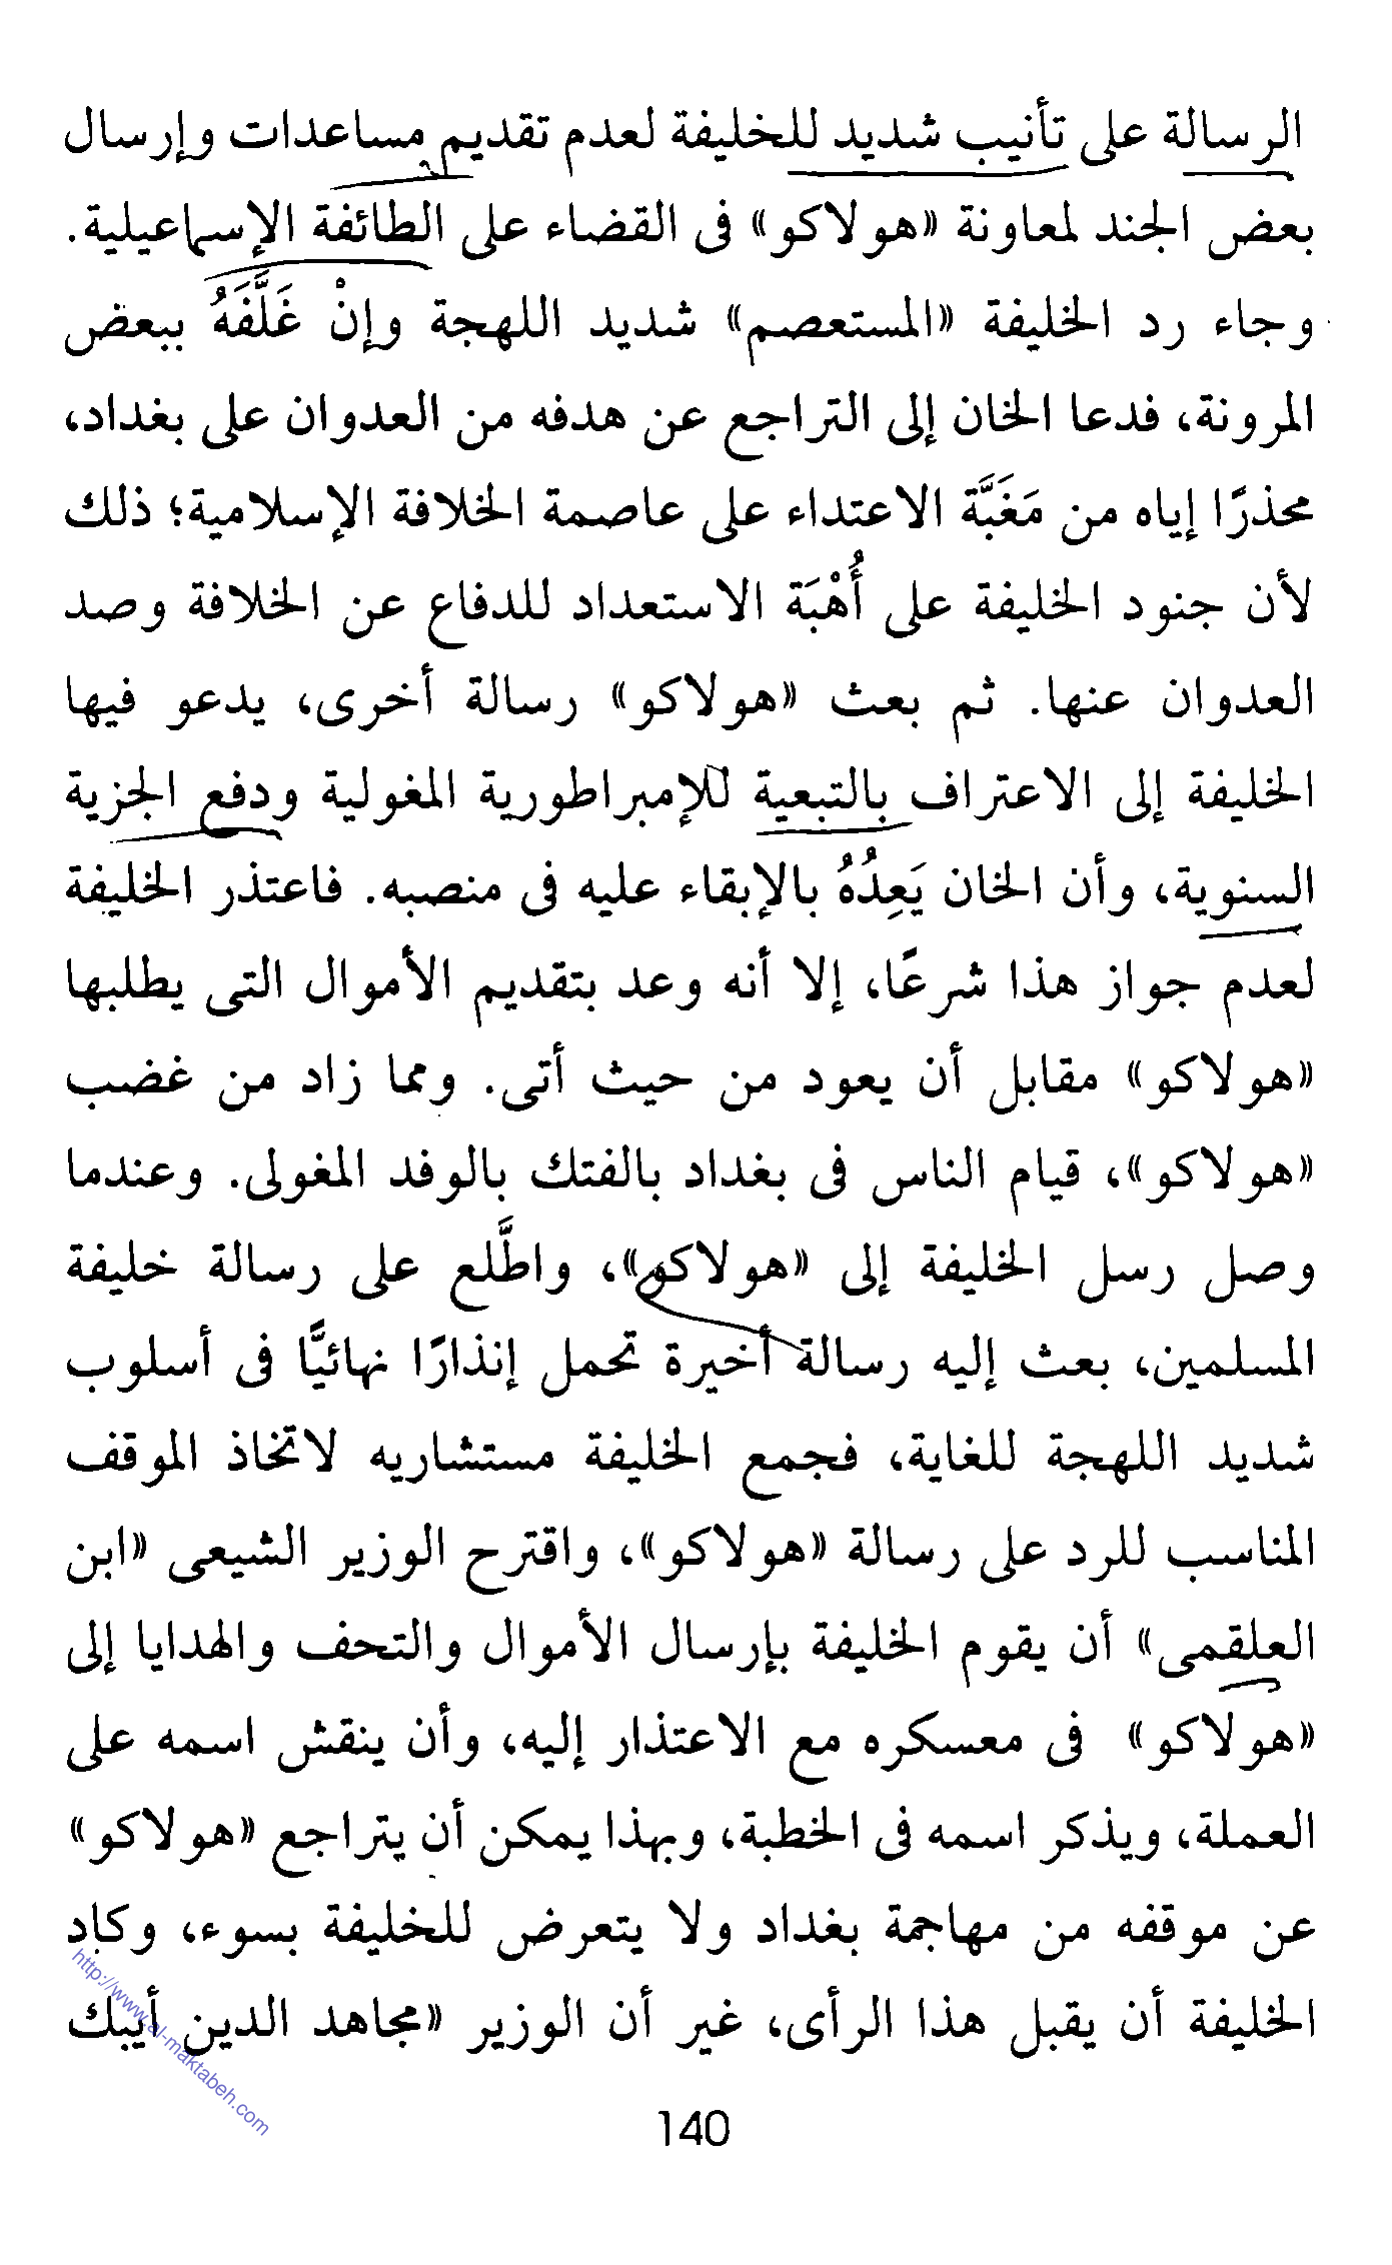 الرسالة على تأنيب شديد للخليفة لعدم تقديم مساعدات وإرسال
بعض الجند لمعاونة «هولاكو» فى القضاء على الطائفة الإسماعيلية.
وجاء رد الخليفة «المستعصم» شديد اللهجة وإنْ غَلَّفَهُ ببعض
المرونة، فدعا الخان إلى التراجع عن هدفه من العدوان على بغداد،
محذرًا إياه من مَغَبَّة الاعتداء على عاصمة الخلافة الإسلامية؛ ذلك
لأن جنود الخليفة على أُهْبَة الاستعداد للدفاع عن الخلافة وصد
العدوان عنها. ثم بعث «هولاكو» رسالة أخرى، يدعو فيها
الخليفة إلى الاعتراف بالتبعية للإمبراطورية المغولية ودفع الجزية
السنوية، وأن الخان يَعِدُهُ بالإبقاء عليه فى منصبه. فاعتذر الخليفة
لعدم جواز هذا شرعًا، إلا أنه وعد بتقديم الأموال التى يطلبها
«هولاكو» مقابل أن يعود من حيث أتى. ومما زاد من غضب
«هولاكو»، قيام الناس فى بغداد بالفتك بالوفد المغولى. وعندما
وصل رسل الخليفة إلى «هولاكو»، واطَّلع على رسالة خليفة
المسلمين، بعث إليه رسالة أخيرة تحمل إنذارًا نهائيًّا فى أسلوب
شديد اللهجة للغاية، فجمع الخليفة مستشاريه لاتخاذ الموقف
المناسب للرد على رسالة «هولاكو»، واقترح الوزير الشيعى «ابن
العلقمى» أن يقوم الخليفة بإرسال الأموال والتحف والهدايا إلى
«هولاكو» فى معسكره مع الاعتذار إليه، وأن ينقش اسمه على
العملة، ويذكر اسمه فى الخطبة، وبهذا يمكن أن يتراجع «هولاكو»
عن موقفه من مهاجمة بغداد ولا يتعرض للخليفة بسوء، وكاد
الخليفة أن يقبل هذا الرأى، غير أن الوزير «مجاهد الدين أيبك
http://www.al-maktabeh.com
140